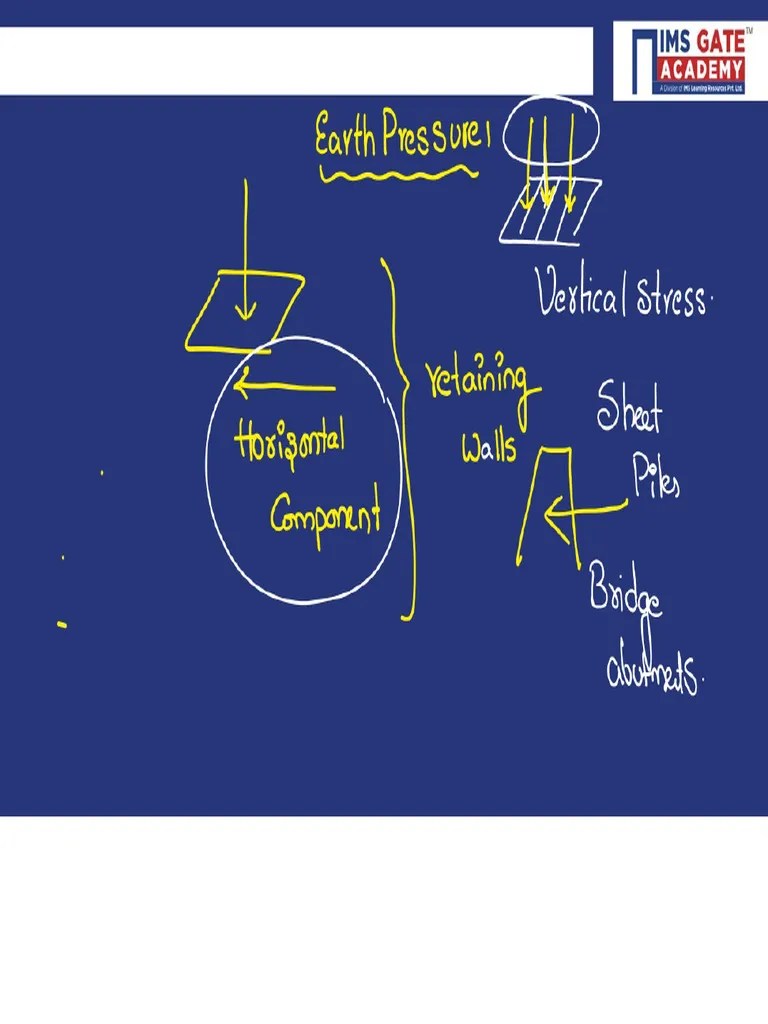 IMS GATE
ACADEMY
TM
A Division of IMS Learning Resources Pvt. Ltd.
Earth Pressure
Vertical Stress.
Horizontal
Component
retaining
walls
Sheet
Piles
Bridge
abutments.